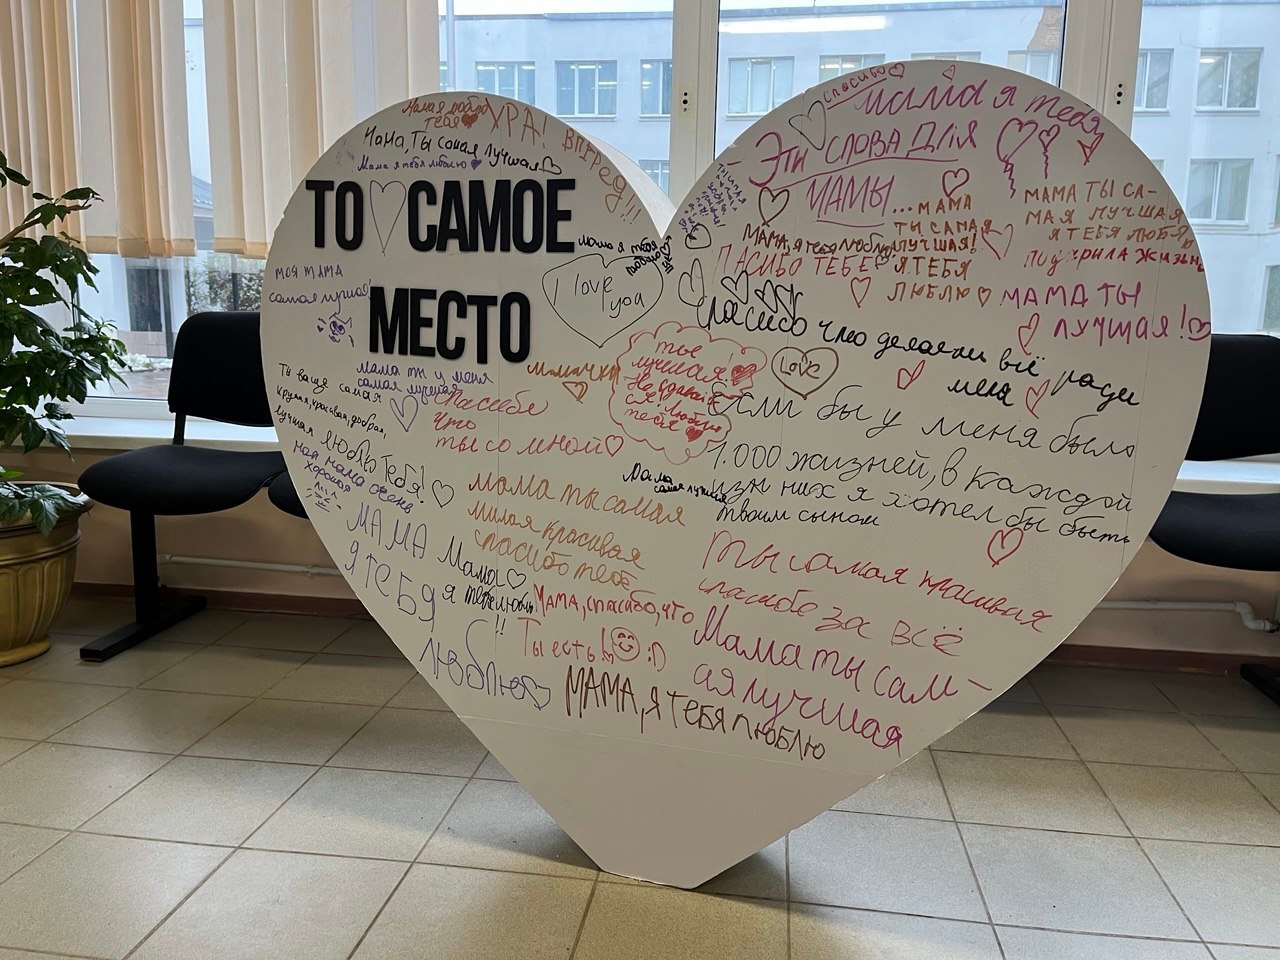 УРА! ВПЕРЕД!!!
Мама, Ты самая лучшая
Мама я тебя люблю
ТО САМОЕ
МЕСТО
моя мама
самая лучшая
мама я тебя
люблю
I love
you
мама ты у меня
самая лучшая
Ты ваще самая
крутая, красивая, добрая,
лучшая люблю тебя!
мамочка
Спасибо
что
ты со мной
ты
лучшая!
тебя
мама ты самая
милая красивая
спасибо тебе
МАМА
Я ТЕБЯ
люблю
Мама
я тебя люблю
!!
МАМА, спасибо, что
Ты есть! :D
МАМА, Я ТЕБЯ ЛЮБЛЮ
спасибо
мама я тебя
Эти СЛОВА ДЛЯ
МАМЫ...
МАМА
ТЫ САМАЯ
ЛУЧШАЯ!
Я ТЕБЯ
ЛЮБЛЮ
МАМА ТЫ СА-
МАЯ ЛУЧШАЯ
Я ТЕБЯ ЛЮБЛЮ
МАМА, я тебя люблю
ПАСИБО ТЕБЕ
МАМА ТЫ
ЛУЧШАЯ!
Спасибо что делаешь всё ради
меня
Love
Если бы у меня было
1.000 жизней, в каждой
изн них я хотел бы быть
твоим сыном
мама
самая лучшая
Ты самая красивая
спасибо за всё
Мама ты сам-
ая лучшая